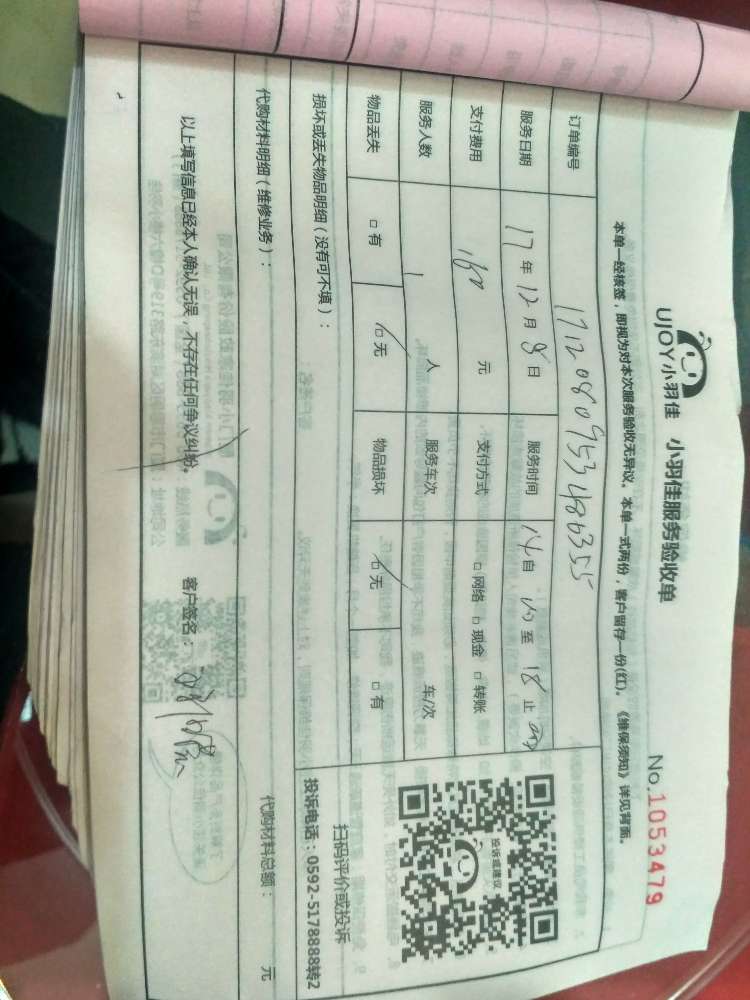 UJOY小羽佳 小羽佳服务验收单 No.1053479
本单一经核签，即视为对本次服务验收无异议。本单一式两份，客户留存一份(红)。《维保须知》详见背面。
订单编号 1712080953486355
服务日期 17年12月8日 服务时间 14自 至18止
支付费用 元 支付方式 □网络 □现金 □转账
服务人数 1人 服务车次 车/次
物品丢失 □有 □无 物品损坏 □无 □有
损坏或丢失物品明细（没有可不填）：
代购材料明细（维修业务）： 代购材料总额： 元
以上填写信息已经本人确认无误，不存在任何争议纠纷。 客户签名：
投诉或建议
扫码评价或投诉
投诉电话：0592-5178888转2